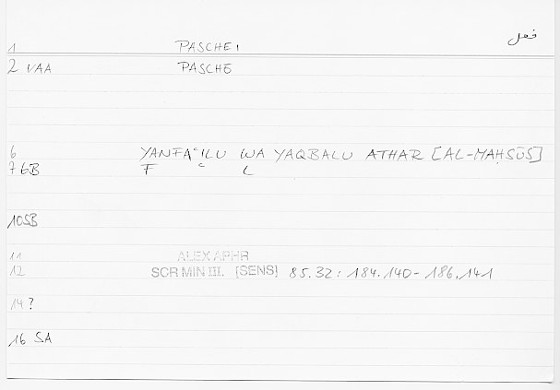 فعل
1 PASCHEI
2 VAA PASCHE
6 YANFAʿILU WA YAQBALU ATHAR [AL-MAḤSŪS]
7 GB F ʿ L
10 SB
11 ALEX APHR
12 SCR MIN III. [SENS] 85.32 : 184.140 - 186.141
14 ?
16 SA